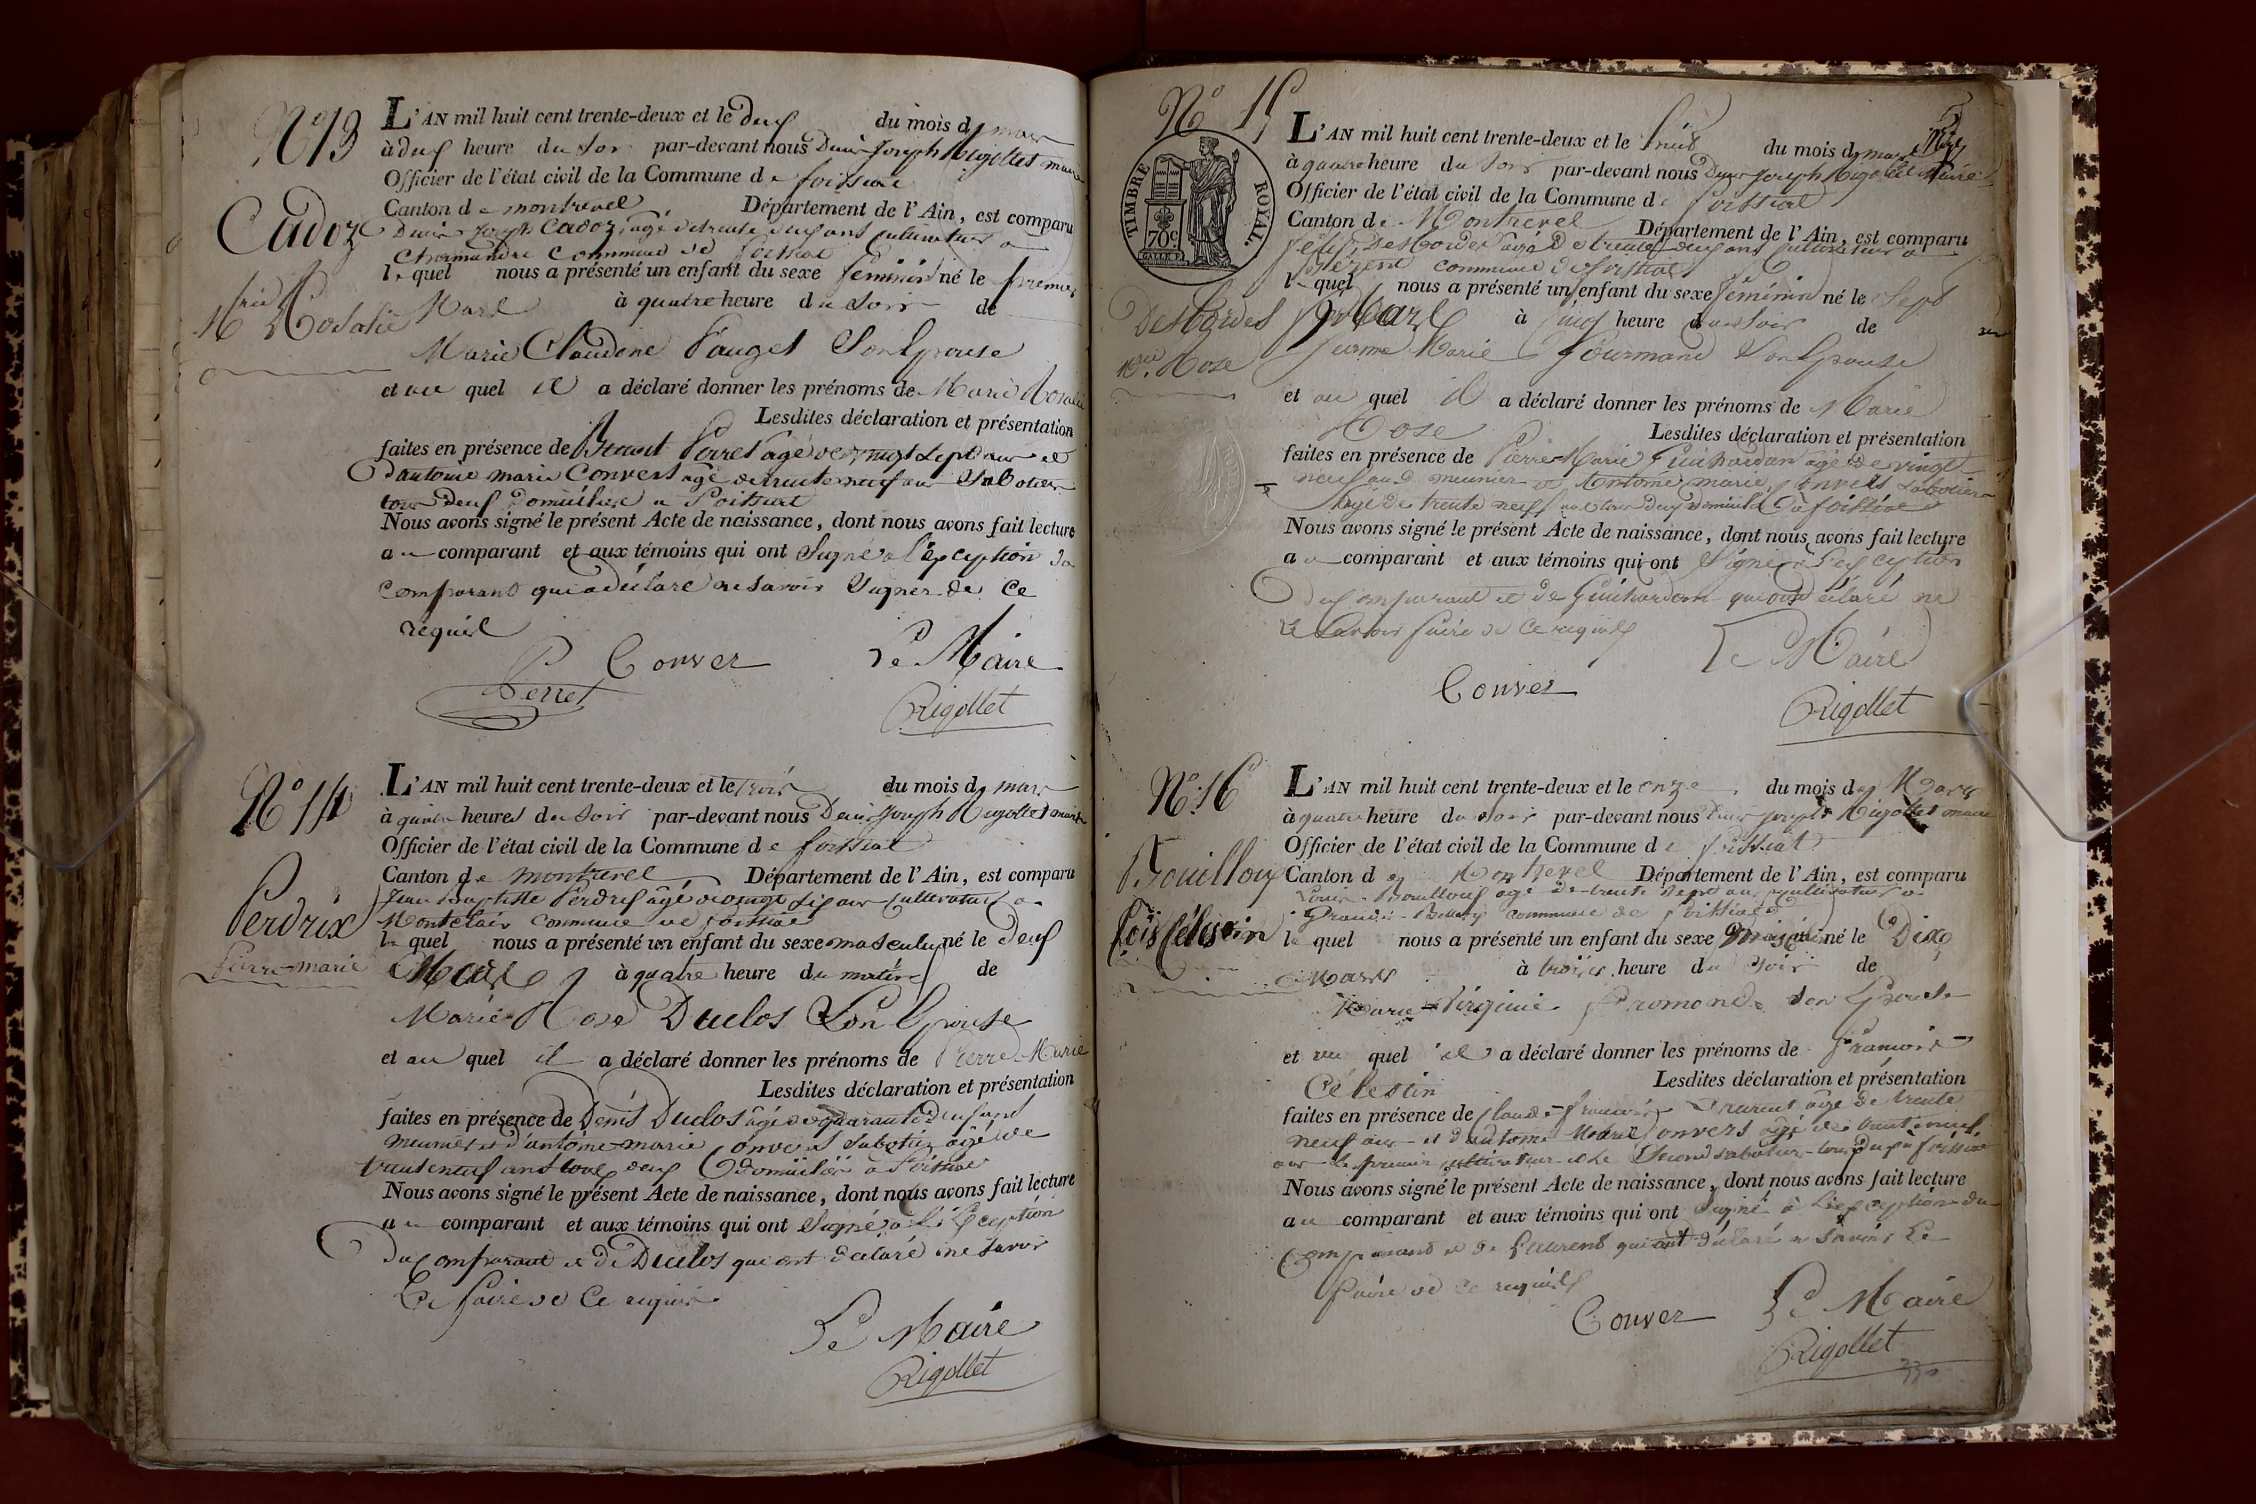 N° 13
L'AN mil huit cent trente-deux et le deux du mois de mars
à deux heure du soir par-devant nous Denis Joseph Rigollet maire
Officier de l'état civil de la Commune de foissiat
Canton de montrevel Département de l'Ain, est comparu
Cadoz
Denis Joseph Cadoz, âgé de trente deux ans cultivateur à
commune de foissiat
le quel nous a présenté un enfant du sexe féminin né le premier
Mrie Rosalie
Mars à quatre heure du soir de
Marie Claudine Pauget Son Epouse
et au quel il a déclaré donner les prénoms de Marie Rosalie
Lesdites déclaration et présentation
faites en présence de Benoit Perret âgé de vingt sept ans et
d'antoine marie Convers âgé de trente neuf ans Sabotier
tous deux domiciliés à Foissiat
Nous avons signé le présent Acte de naissance, dont nous avons fait lecture
au comparant et aux témoins qui ont Signé à l'exception du
comparant qui a déclaré ne savoir signer de ce
requis
Conver Le Maire
Perret Rigollet
N° 14
L'AN mil huit cent trente-deux et le trois du mois de mars
à quatre heures du soir par-devant nous Denis Joseph Rigollet maire
Officier de l'état civil de la Commune de foissiat
Canton de montrevel Département de l'Ain, est comparu
Perdrix
Jean Baptiste Perdrix âgé de ans cultivateur à
Montclair commune de foissiat
le quel nous a présenté un enfant du sexe masculin né le deux
Pierre-marie
Mars à quatre heure du matin de
Marie Rose Duclos Son Epouse
et au quel il a déclaré donner les prénoms de Pierre Marie
Lesdites déclaration et présentation
faites en présence de Denis Duclos âgé de quarante deux ans
meunier et d'antoine marie Convers Sabotier âgé de
trente neuf ans tous deux domiciliés à Foissiat
Nous avons signé le présent Acte de naissance, dont nous avons fait lecture
au comparant et aux témoins qui ont Signé à l'exception
du comparant et de Duclos qui ont déclaré ne savoir
Le faire de ce requis
Le Maire
Rigollet
N° 15
TIMBRE ROYAL.
70c
L'AN mil huit cent trente-deux et le huit du mois de mars
à quatre heure du soir par-devant nous Denis Joseph Rigollet Maire
Officier de l'état civil de la Commune de foissiat
Canton de Montrevel Département de l'Ain, est comparu
Desbordes âgé de trente deux ans cultivateur à
commune de foissiat
le quel nous a présenté un enfant du sexe féminin né le Sept
Desbordes
Mars à cinq heure du soir de
Mrie Rose
Marie Gourmand Son Epouse
et au quel il a déclaré donner les prénoms de Marie
Rose Lesdites déclaration et présentation
faites en présence de Pierre Marie Guichardon âgé de vingt
neuf ans meunier et Antoine marie Convers sabotier
âgé de trente neuf ans tous deux domiciliés à foissiat
Nous avons signé le présent Acte de naissance, dont nous avons fait lecture
au comparant et aux témoins qui ont Signé à l'exception
du comparant et de Guichardon qui ont déclaré ne
Le savoir faire de ce requis
Le Maire
Conver
Rigollet
N° 16
L'AN mil huit cent trente-deux et le onze du mois de Mars
à quatre heure du soir par-devant nous Denis Joseph Rigollet maire
Officier de l'état civil de la Commune de foissiat
Bouilloux
Canton de Montrevel Département de l'Ain, est comparu
Louis Bouilloux âgé de trente sept ans cultivateur à
commune de foissiat
fcois Célestin
le quel nous a présenté un enfant du sexe masculin né le Dix
Mars à trois heure du soir de
Marie Virginie Promonet son Epouse
et au quel il a déclaré donner les prénoms de francois
Célestin Lesdites déclaration et présentation
faites en présence de Claude francois Laurent âgé de trente
neuf ans et d'antoine Marie Convers âgé de trente neuf
ans le premier cultivateur et le Second sabotier tous deux à foissiat
Nous avons signé le présent Acte de naissance, dont nous avons fait lecture
au comparant et aux témoins qui ont Signé à l'exception du
Comparant et de Laurent qui ont déclaré ne savoir Le
faire de ce requis
Conver Le Maire
Rigollet